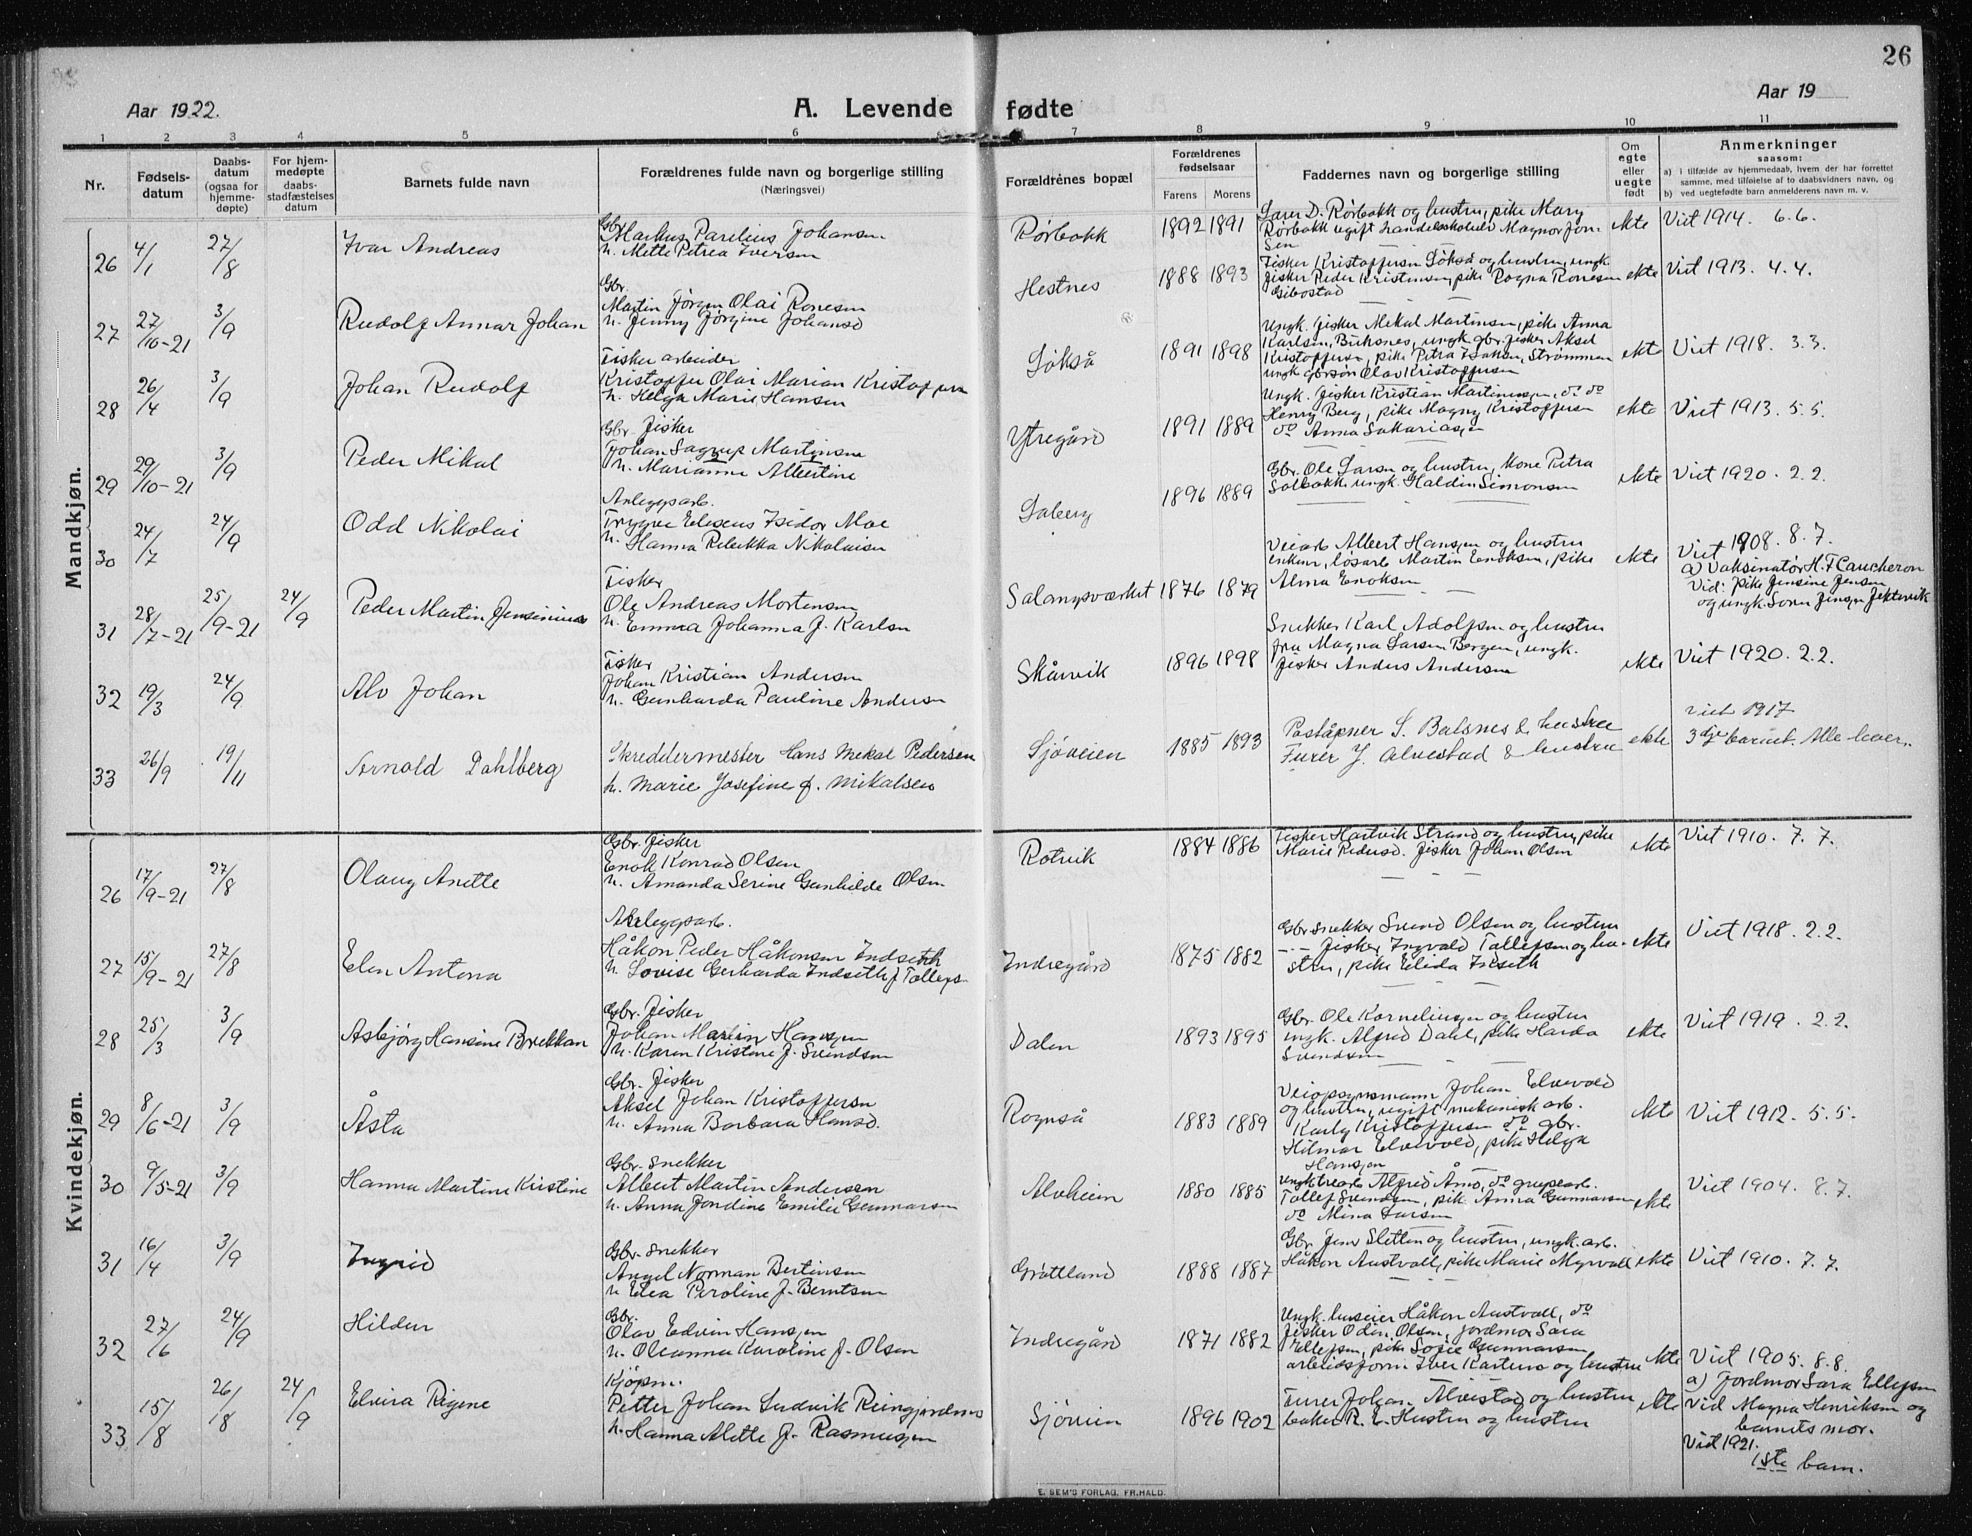 26
Aar 1922.
A. Levende fødte
Aar 19
1 2 3 4 5 6 7 8 9 10 11
Nr.
Fødsels-
datum
Daabs-
datum
(ogsaa for
hjemme-
døpte)
For hjem-
medøpte
daabs-
stadfæstelses
datum
Barnets fulde navn
Forældrenes fulde navn og borgerlige stilling
(Næringsvei)
Forældrenes bopæl
Forældrenes
fødselsaar
Farens Morens
Faddernes navn og borgerlige stilling
Om
egte
eller
uegte
født
Anmerkninger
saasom:
a) i tilfælde av hjemmedaab, hvem der har forrettet
samme, med tilføielse af to daabsvidners navn, og
b) ved uegtefødte barn anmelderens navn m. v.
Mandkjøn.
26 4/1 27/8 Ivar Andreas
Gbr.
Markus Parelius Johansen
h. Mette Petrea Iversen
Rørbakk 1892 1891
Lars D. Rørbakk og hustru, pike Mary
Rørbakk ugift handelsbetj. Magnor Jen-
sen
ekte Viet 1914. 6.6.
27 27/10-21 3/9 Rudolf Annar Johan
Gbr.
Martin Jørgen Olai Ronesen
h. Jenny Jørgine Johansd
Hestnes 1888 1893
Fisker Kristoffersen Løkså og hustru, ungk.
fisker Peder Kristensen, pike Ragna Ronesen
Gibostad
ekte Viet 1913. 4.4.
28 26/4 3/9 Johan Rudolf
Fisker arbeider
Kristoffer Olai Marian Kristoffersen
h. Helga Marie Hansen
Løkså 1891 1898
Ungk. fisker Mekal Martinsen, pike Anna
Karlsen, Buksnes, ungk. gbr. fisker Aksel
Kristoffersen, pike Petra Isaksen, Strømmen
ungk gbrsøn Olav Kristoffersen
ekte Viet 1918. 3.3.
29 29/10-21 3/9 Peder Mikal
Gbr. fisker
Johan Martinsen
h. Marianne Albertine
Ytregård 1891 1889
Ungk. fisker Kristian Martinussen, do do
Henry Berg, pike Magny Kristoffersen
do Anna Sakariasen
ekte Viet 1913. 5.5.
30 24/7 24/9 Odd Nikolai
Anleggsarb.
Trygve Eliseus Isidor Moe
h. Hanna Rebekka Nikolaisen
Laberg 1896 1889
Gbr. Ole Larsen og hustru, kone Petra
Solbakk ungk. Haldin Simonsen
ekte Viet 1920. 2.2.
31 28/7-21 25/9-21 24/9 Peder Martin Jensinius
Fisker
Ole Andreas Mortensen
h. Emma Johanna f. Karlsen
Salangsverket 1876 1879
Veiarb Albert Hansen og hustru
enkem. løsarb. Martin Enoksen, pike
Alma Enoksen
ekte Viet 1908. 8.7.
a) Vaksinatør H. F Caucheron
Vid: pike Jensine Jensen
og ungk. Søren Jensen Jektevik
32 19/3 24/9 Alv Johan
Fisker
Johan Kristian Andersen
h. Gunharda Pauline Andersen
Skårvik 1896 1898
Snekker Karl Adolfsen og hustru
fru Magna Larsen Bergen, ungk.
fisker Anders Andersen
ekte Viet 1920. 2.2.
33 26/9 19/11 Arnold Dahlberg
Skreddermester Hans Mekal Pedersen
h. Marie Josefine f. Mikalsen
Sjøveien 1885 1893
Poståpner S. Balsnes & hustru
Furer J. Alvestad & hustru
ekte viet 1917
3dje barnet. Alle lever.
Kvindekjøn.
26 17/9-21 27/8 Olaug Anette
Gbr. fisker
Enok Konrad Olsen
h. Amanda Serine Gunhilde Olsen
Rotvik 1884 1886
Fisker Hartvik Strand og hustru, pike
Marie Pedersd. fisker Johan Olsen
ekte Viet 1910. 7.7.
27 15/9-21 27/8 Elen Antona
Anleggsarb.
Håkon Peder Håkonsen Indseth
h. Lovise Gerharda Indseth f Tollefs-
Indregård 1875 1882
Gbr snekker Svend Olsen og hustru
--- fisker Ingvald Tollefsen og hu-
stru, pike Elida Inseth
ekte Viet 1918. 2.2.
28 25/3 3/9 Asbjørg Hansine Brekkan
Gbr. fisker
Johan Martin Hansen
h. Karen Kristine f. Svendsen
Dalen 1893 1895
Gbr. Ole Kornelinsen og hustru
ungk. Alfred Dahl, pike Harda
Svendsen
ekte Viet 1919. 2.2.
29 8/6-21 3/9 Åsta
Gbr. fisker
Aksel Johan Kristoffersen
h. Anna Barbara Hansd.
Rognså 1883 1889
Veiopsynsmann Johan Elvevold
og hustru, ugift mekanisk arb.
Karly Kristoffersen do gbr.
Hilmar Elvevold, pike Helga
Hansen
ekte Viet 1912. 5.5.
30 9/5-21 3/9 Hanna Martine Kristine
Gbr. snekker
Albert Martin Andersen
h. Anna Jondine Emilie Gunnarsen
Alvheim 1880 1885
Ungk Alfred Åmo, do grubearb.
Tollef Svendsen, pik. Anna Gunnarsen
do Mina Larsen
ekte Viet 1904. 8.7.
31 16/4 3/9 Ingrid
Gbr. snekker
Angel Norman Bertinsen
h Elea Peroline f. Berntsen
Grøttland 1888 1887
Gbr. Jens Sletten og hustru, ungk. arb.
Håkon Austvoll, pike Marie Myrvoll
ekte Viet 1910. 7.7.
32 27/6 24/9 Hildur
Gbr.
Olav Edvin Hansen
h. Oleanna Karoline f. Olsen
Indregård 1871 1882
Ungk. huseier Håkon Austvoll, do
fisker Odin Olsen, jordmor Sara
Ellefsen, pike Sofie Gunnarsen
arbeidsform. Iver Karlsen og hustru
ekte Viet 1905. 8.8.
33 15/8 26/8 24/9 Elvira Rigene
Kjøpm.
Petter Johan Ludvik Reingjordnes
h. Hanna Alette f. Rasmussen
Sjøveien 1896 1902
Furer Johan. Alvestad og hustru
baker R. E. Hustru og hustru
ekte a) Jordmor Sara Ellefsen
Vid Magna Henriksen og
barnets mor.
Viet 1921.
1ste barn.
E. SEM'S FORLAG, FR.HALD.